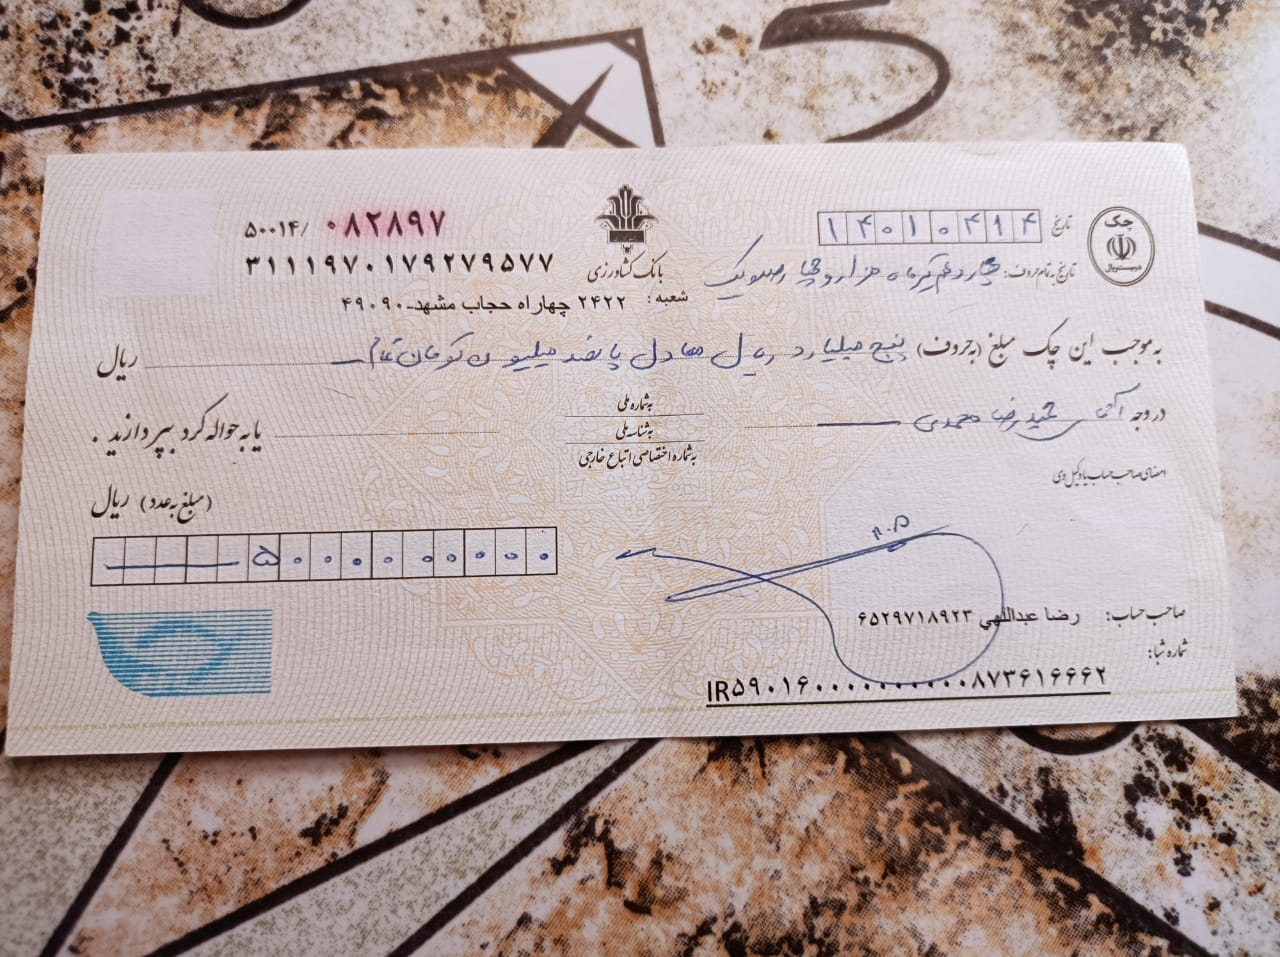 چک
در وجه ریال
تاریخ ۱۴۰۱۰۴۱۴
۵۰۰۱۴/ ۰۸۲۸۹۷
تاریخ به تمام حروف: چهاردهم تیرماه هزار و چهارصد و یک
۳۱۱۱۹۷۰۱۷۹۲۷۹۵۷۷
بانک کشاورزی
شعبه: ۲۴۲۲ چهار راه حجاب مشهد-۴۹۰۹۰
به موجب این چک مبلغ (به حروف) پنج میلیارد ریال معادل پانصد میلیون تومان تمام ریال
در وجه آقای حمیدرضا محمدی
به شماره ملی
به شناسه ملی
به شماره اختصاصی اتباع خارجی
یا به حواله کرد بپردازید .
امضای صاحب حساب یا وکیل وی
(مبلغ به عدد) ریال
۵۰۰۰۰۰۰۰۰۰
صاحب حساب: رضا عبداللهي ۶۵۲۹۷۱۸۹۲۳
شماره شبا:
IR۵۹۰۱۶۰۰۰۰۰۰۰۰۰۰۰۸۷۳۶۱۶۶۶۲